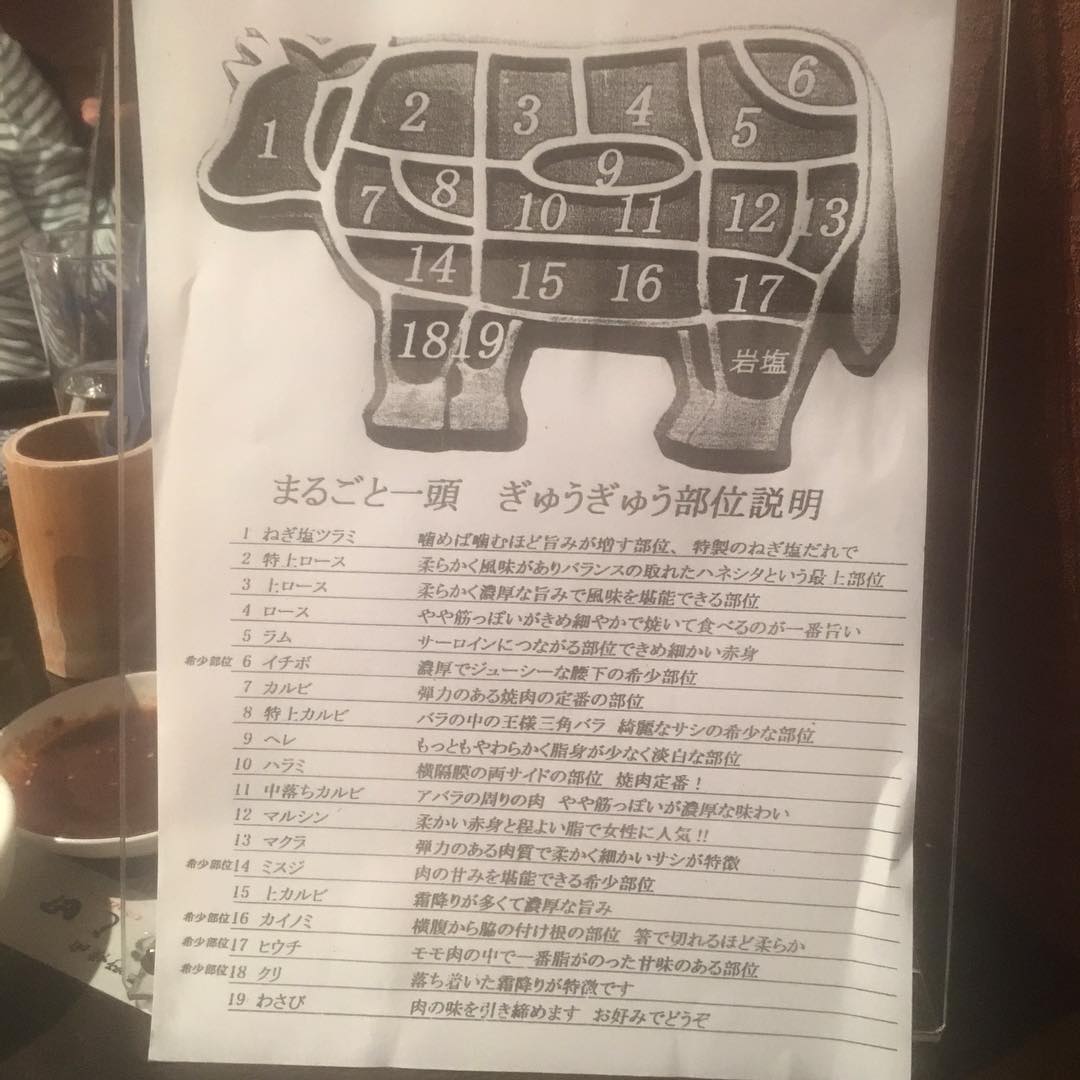 1
2
3
4
5
6
7
8
9
10
11
12
13
14
15
16
17
18
19
岩塩
まるごと一頭 ぎゅうぎゅう部位説明
1 ねぎ塩ツラミ 噛めば噛むほど旨みが増す部位、 特製のねぎ塩だれで
2 特上ロース 柔らかく風味がありバランスの取れたハネシタという最上部位
3 上ロース 柔らかく濃厚な旨みで風味を堪能できる部位
4 ロース やや筋っぽいがきめ細やかで焼いて食べるのが一番旨い
5 ラム サーロインにつながる部位できめ細かい赤身
希少部位 6 イチボ 濃厚でジューシーな腰下の希少部位
7 カルビ 弾力のある焼肉の定番の部位
8 特上カルビ バラの中の王様三角バラ 綺麗なサシの希少な部位
9 ヘレ もっともやわらかく脂身が少なく淡白な部位
10 ハラミ 横隔膜の両サイドの部位 焼肉定番！
11 中落ちカルビ アバラの周りの肉 やや筋っぽいが濃厚な味わい
12 マルシン 柔かい赤身と程よい脂で女性に人気!!
13 マクラ 弾力のある肉質で柔かく細かいサシが特徴
希少部位 14 ミスジ 肉の甘みを堪能できる希少部位
15 上カルビ 霜降りが多くて濃厚な旨み
希少部位 16 カイノミ 横腹から脇の付け根の部位 箸で切れるほど柔らか
希少部位 17 ヒウチ モモ肉の中で一番脂がのった甘味のある部位
希少部位 18 クリ 落ち着いた霜降りが特徴です
19 わさび 肉の味を引き締めます お好みでどうぞ